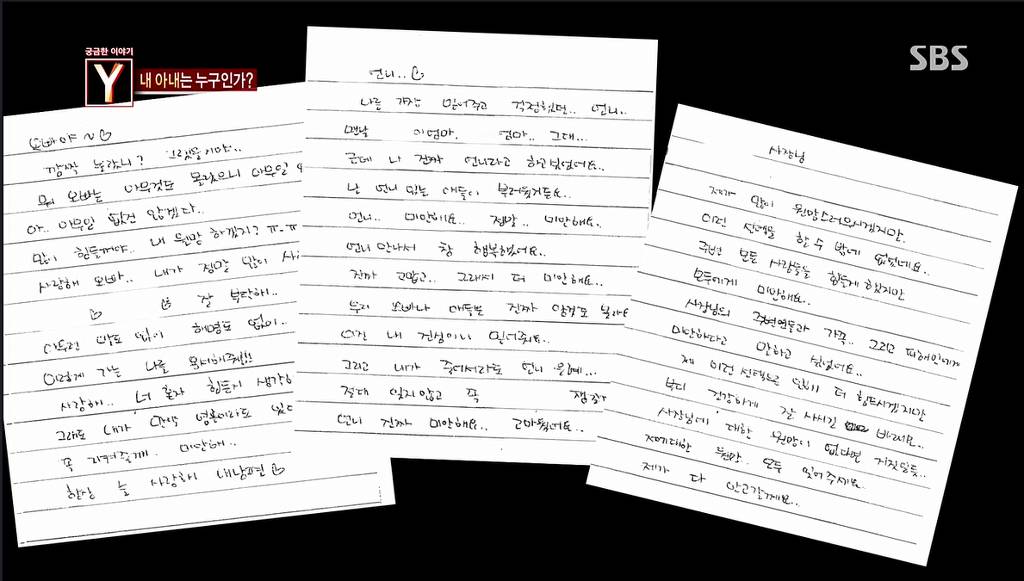 궁금한 이야기
Y
내 아내는 누구인가?
SBS
오빠야~♡
깜짝 놀랐니? 그랬을거야..
뭐 오빠는 아무것도 몰랐으니 아무일
아.. 아무일 없진 않겠다..
많이 힘들꺼야.. 내 원망 하겠지? ㅠ.ㅠ
사랑해 오빠.. 내가 정말 많이
♡ 잘 부탁해..
아무런 말도 없이 해명도 없이..
이렇게 가는 나를 용서해줘!!
사랑해.. 너 혼자 힘든지
그래도 내가 만약 영혼이라도
꼭 지켜줄게.. 미안해..
항상 늘 사랑해 내남편♡
언니..♡
나를 가장 믿어주고 걱정했던.. 언니..
맨날 이엄마. 엄마.. 그래...
근데 나 진짜 언니라고 하고싶었어요..
난 언니 있는 애들이 부러웠거든요..
언니.. 미안해요.. 정말.. 미안해요..
언니 만나서 참 행복했어요..
진짜 고맙고.. 그래서 더 미안해요..
우리 오빠나 애들도 진짜
이건 내 진심이니 믿어줘요..
그리고 내가 죽어서라도 언니 위해...
절대 잊지않고 꼭
언니 진짜 미안해요.. 고마웠어요..
사장님
제가 많이 원망스러우시겠지만.
이런 선택을 할 수 밖에 없었네요..
주변 모든 사람들을 힘들게 했지만
모두에게 미안해요..
사장님의 주변분들과 가족.. 그리고 피해인에게
미안하다고 말하고 싶었어요..
제 이런 선택으로 인해 더 힘드시겠지만
부디 건강하게 잘 사시길 바래요..
사장님에 대한 원망이 없다면 거짓말듯..
저에대한 원망.. 모두 잊어주세요..
제가 다 안고갈게요..